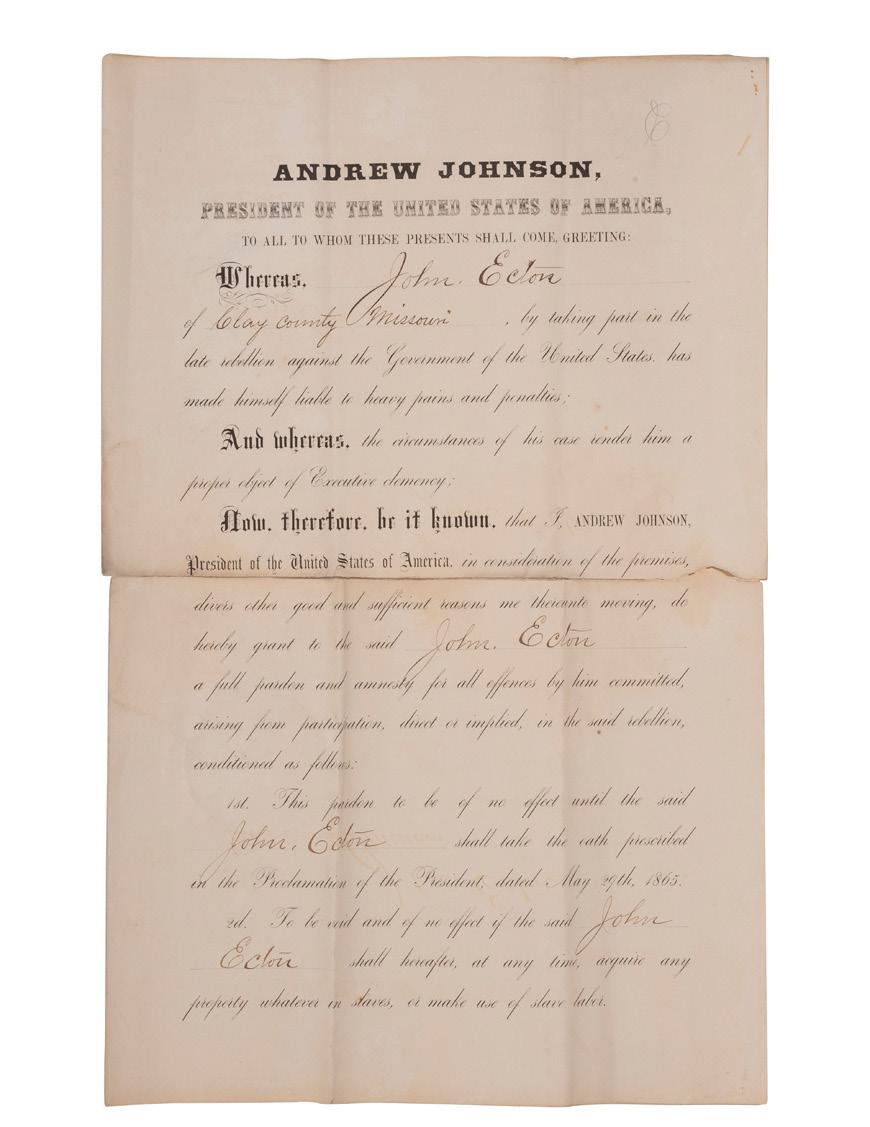 E
ANDREW JOHNSON,
PRESIDENT OF THE UNITED STATES OF AMERICA,
TO ALL TO WHOM THESE PRESENTS SHALL COME, GREETING:
Whereas, John. Ecton
of Clay county Missouri , by taking part in the
late rebellion against the Government of the United States, has
made himself liable to heavy pains and penalties;
And whereas, the circumstances of his case render him a
proper object of Executive clemency;
Now, therefore, be it known, that I, ANDREW JOHNSON,
President of the United States of America, in consideration of the premises,
divers other good and sufficient reasons me thereunto moving, do
hereby grant to the said John. Ecton
a full pardon and amnesty for all offences by him committed,
arising from participation, direct or implied, in the said rebellion,
conditioned as follows:
1st. This pardon to be of no effect until the said
John. Ecton shall take the oath prescribed
in the Proclamation of the President, dated May 29th, 1865.
2d. To be void and of no effect if the said John
Ecton shall hereafter, at any time, acquire any
property whatever in slaves, or make use of slave labor.